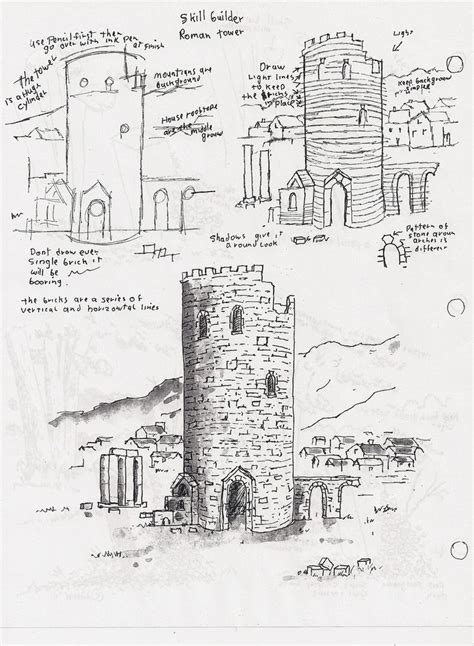 Skill builder
Roman tower
Use Pencil first then
go over with ink pen
at finish
the tower
is a tough
cylinder
mountians are
background
House rooftops
are the middle
groun
Draw
Light lines
to keep
the bricks in
place
Light
Keep background
simpler
Shadows give it
around look
Pattern of
stone aroun
arches is
differer
Dont draw ever
Single brick it
will be
booring.
the bricks are a series of
vertical and horizontal lines